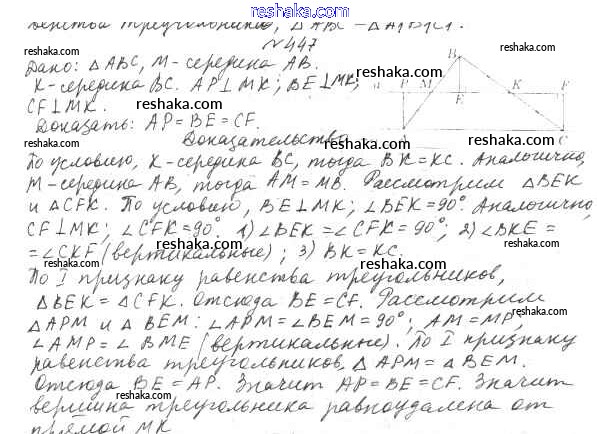 reshaka.ru
венства треугольников, △ABC = △A1B1C1.
№447
Дано: △ABC, M-середина AB.
K-середина BC. AP⊥MK; BE⊥MK;
CF⊥MK.
Доказать: AP=BE=CF.
B
P M K F
E
C
Доказательство
По условию, K-середина BC, тогда BK=KC. Аналогично,
M-середина AB, тогда AM=MB. Рассмотрим △BEK
и △CFK. По условию, BE⊥MK; ∠BEK=90°. Аналогично,
CF⊥MK; ∠CFK=90°. 1) ∠BEK=∠CFK=90°; 2) ∠BKE=
=∠CKF (вертикальные); 3) BK=KC.
По I признаку равенства треугольников,
△BEK=△CFK. Отсюда BE=CF. Рассмотрим
△APM и △BEM: ∠APM=∠BEM=90°; AM=MP,
∠AMP=∠BME (вертикальные). По I признаку
равенства треугольников, △APM=△BEM.
Отсюда BE=AP. Значит AP=BE=CF. Значит
вершина треугольника равноудалена от
прямой MK